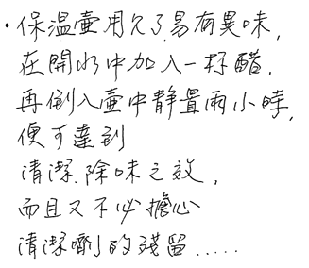 ·保溫壺用久了易有異味,
在開水中加入一杯醋.
再倒入壺中靜置兩小時,
便可達到
清潔.除味之效,
而且又不必擔心
清潔劑的殘留.....